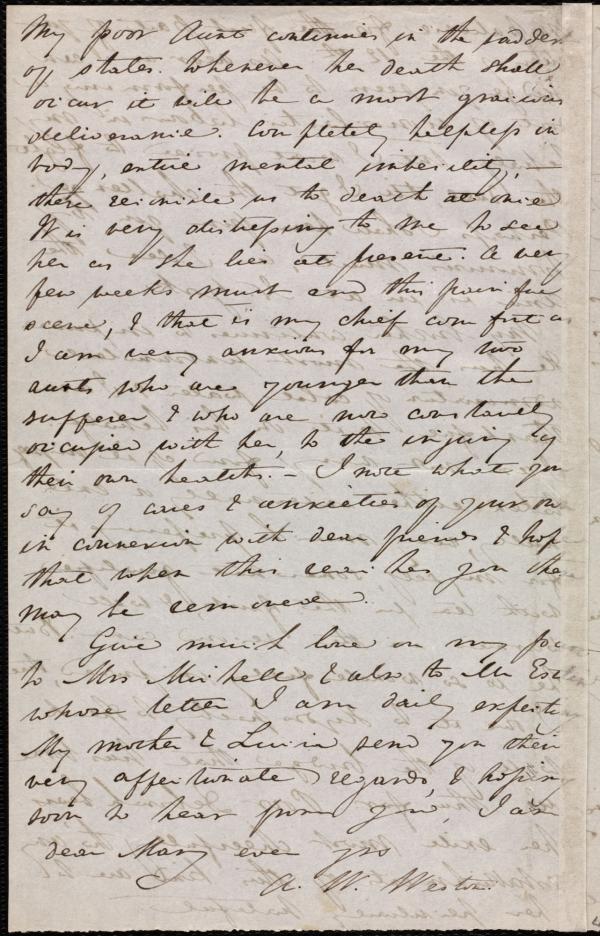 My poor Aunt continues in the sadder
of states. Whenever her death shall
occur it will be a most gracious
deliverance. Completely helpless in
body, entire mental imbecility, —
these reconcile us to death at once
It is very distressing to me to see
her as she lies at present. A very
few weeks must end this painful
scene, & that is my chief comfort as
I am very anxious for my two
aunts who are younger than the
sufferer & who are now constantly
occupied with her, to the injury of
their own health. — I note what you
say of cares & anxieties of your own
in connexion with dear friends & hope
that when this reaches you they
may be removed.
Give much love on my part
to Mrs Michell & also to Mr Est
whose letter I am daily expecting
My mother & Lucia send you their
very affectionate regards, & hoping
soon to hear from you, I am
dear Mary ever yrs
A. W. Weston.